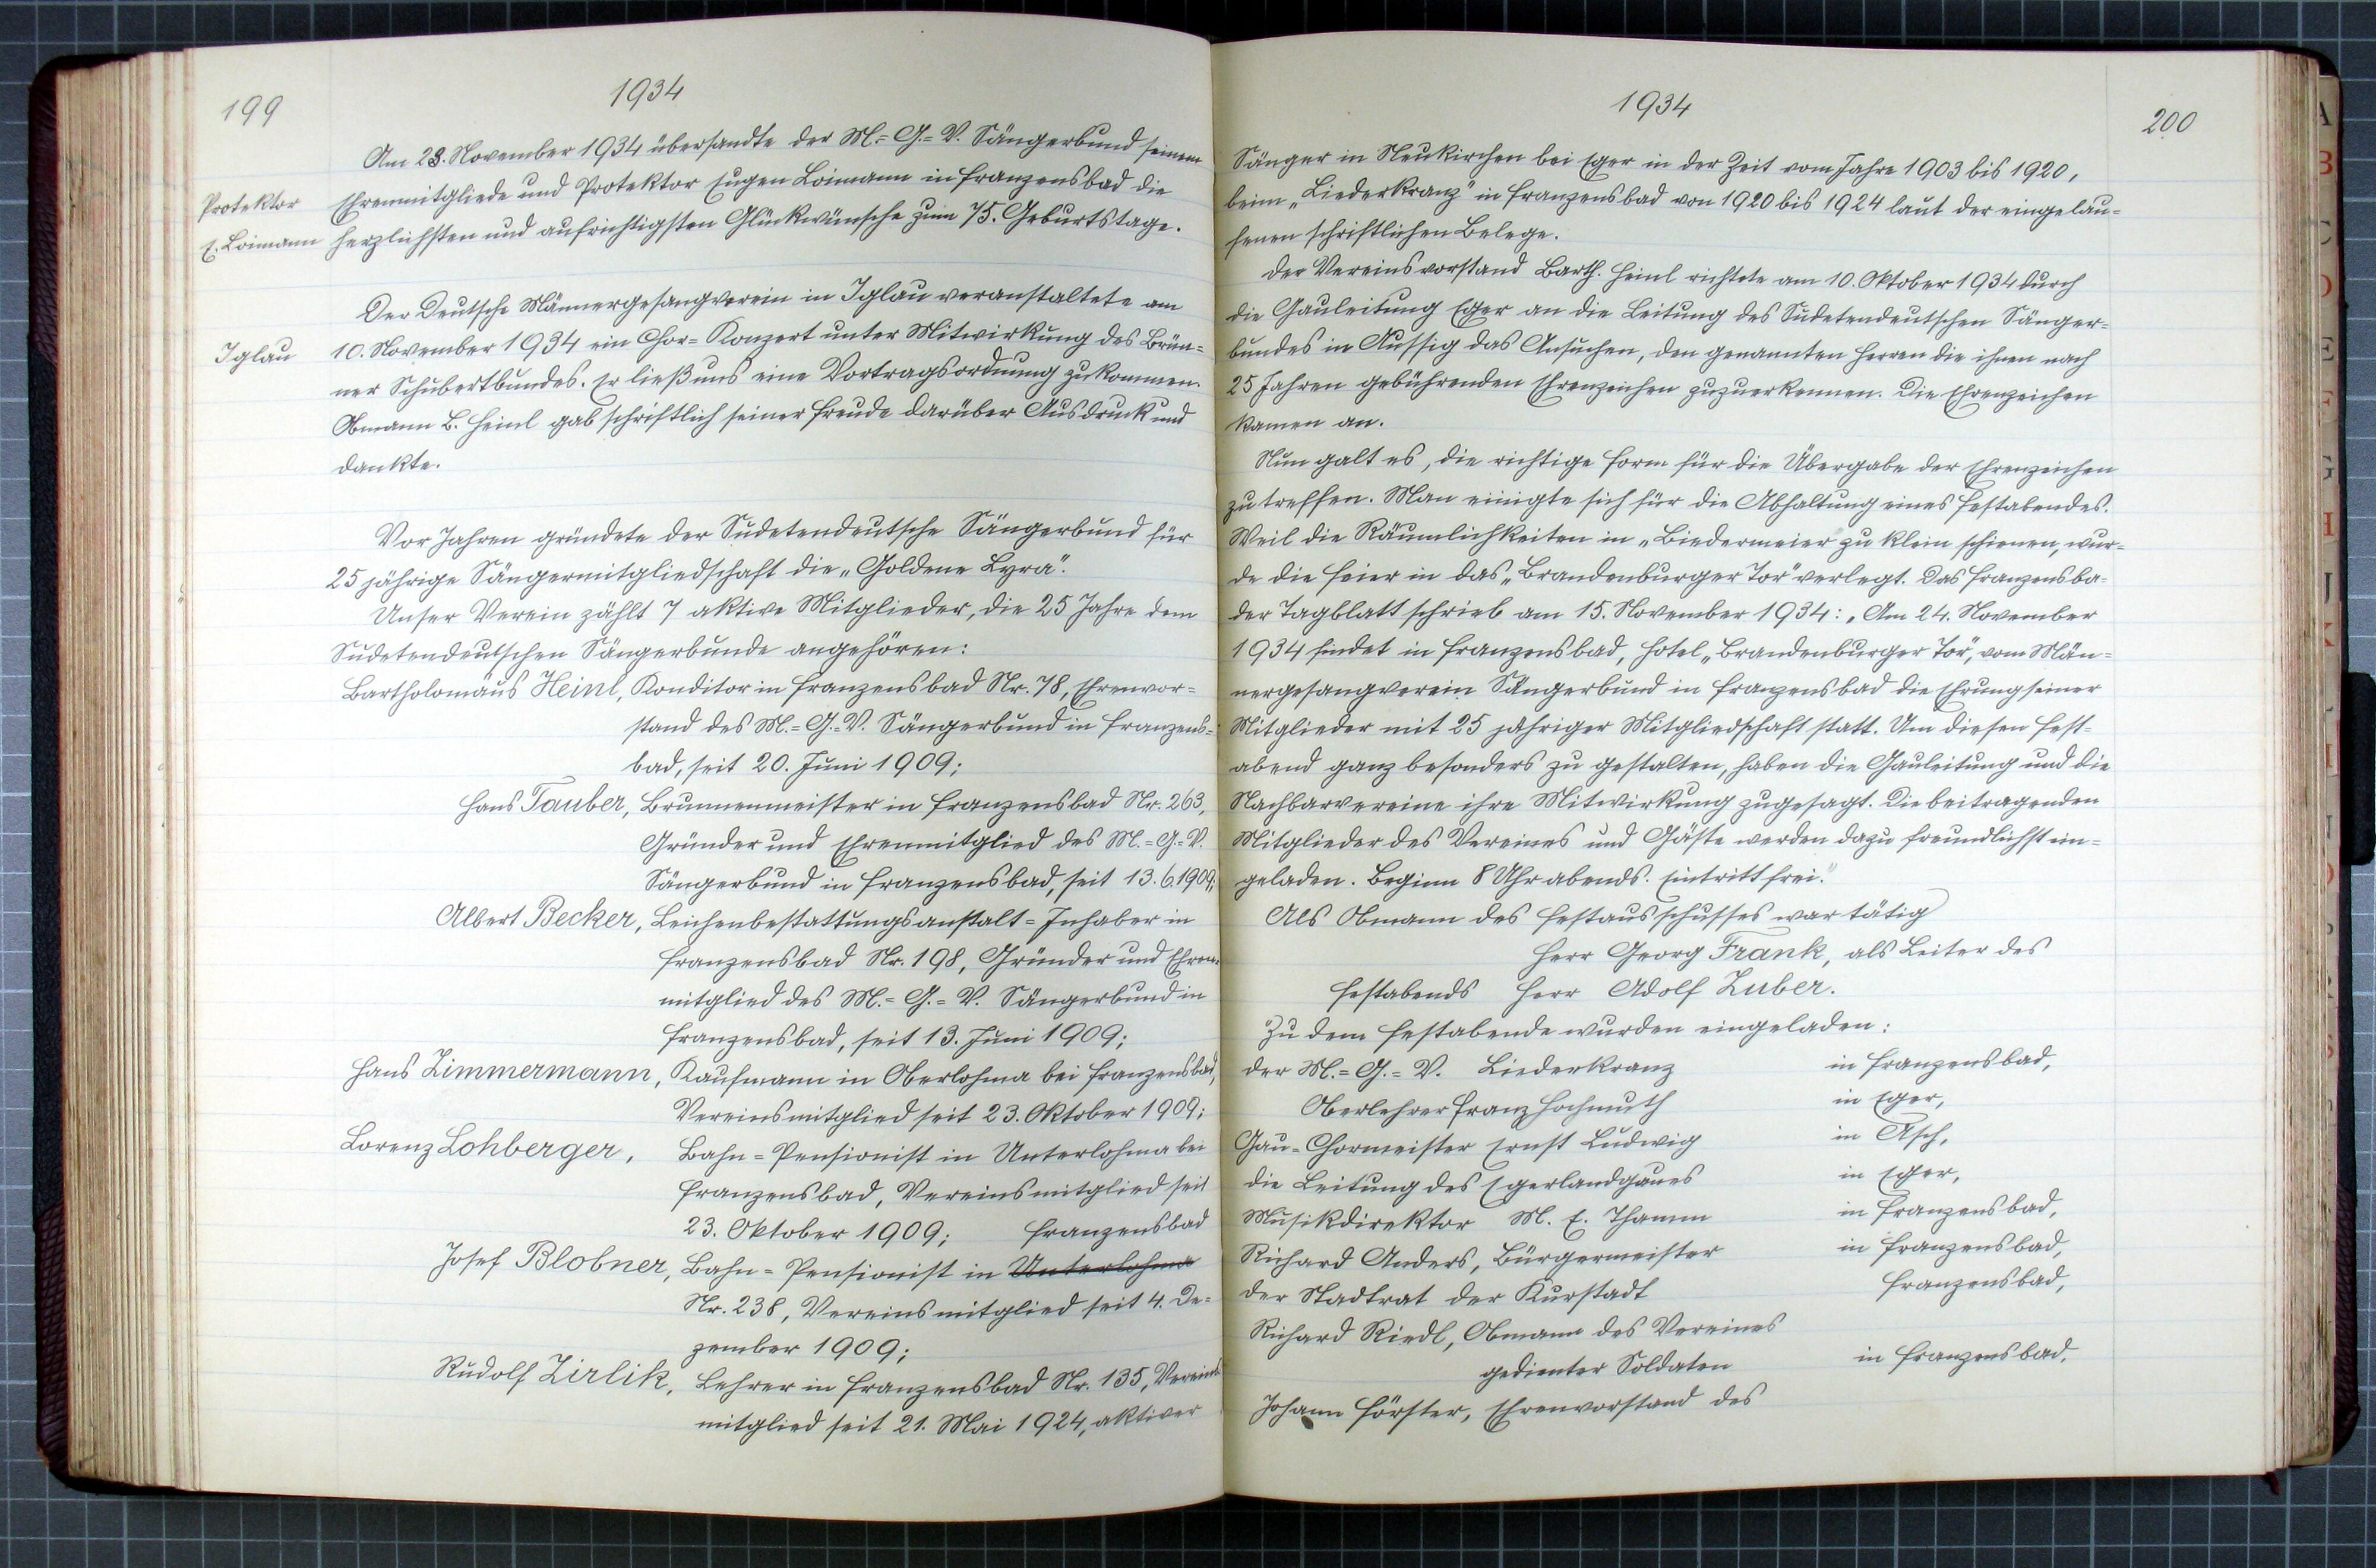 199
1934
Am 23. November 1934 übersandte der M.-G.-V. Sängerbund seinem
Protektor
Ehrenmitgliede und Protektor Eugen Loimann in Franzensbad die
E. Loimann
herzlichsten und aufrichtigsten Glückwünsche zum 75. Geburtstage.
Der Deutsche Männergesangverein in Iglau veranstaltete am
Iglau
10. November 1934 ein Chor-Konzert unter Mitwirkung des Brün-
ner Schubertbundes. Er ließ uns eine Vortragsordnung zukommen.
Obmann B. Heinl gab schriftlich seiner Freude darüber Ausdruck und
dankte.
Vor Jahren gründete der Sudetendeutsche Sängerbund für
25 jährige Sängermitgliedschaft die „Goldene Lyra".
Unser Verein zählt 7 aktive Mitglieder, die 25 Jahre dem
Sudetendeutschen Sängerbunde angehören:
Bartholomäus Heinl, Konditor in Franzensbad Nr. 78, Ehrenvor-
stand des M.-G.-V. Sängerbund in Franzens-
bad, seit 20. Juni 1909;
Hans Tauber, Brunnenmeister in Franzensbad Nr. 263,
Gründer und Ehrenmitglied des M.-G.-V.
Sängerbund in Franzensbad, seit 13.6.1909;
Albert Becker, Leichenbestattungsanstalt-Inhaber in
Franzensbad Nr. 198, Gründer und Ehren-
mitglied des M.-G.-V. Sängerbund in
Franzensbad, seit 13. Juni 1909;
Hans Zimmermann, Kaufmann in Oberlohma bei Franzensbad,
Vereinsmitglied seit 23. Oktober 1909;
Lorenz Lohberger, Bahn-Pensionist in Unterlohma bei
Franzensbad, Vereinsmitglied seit
23. Oktober 1909; Franzensbad
Josef Blobner, Bahn-Pensionist in Unterlohma
Nr. 238, Vereinsmitglied seit 4. De-
zember 1909;
Rudolf Zirlik, Lehrer in Franzensbad Nr. 135, Vereins-
mitglied seit 21. Mai 1924, aktiver
1934
200
Sänger in Neukirchen bei Eger in der Zeit vom Jahre 1903 bis 1920,
beim „Liederkranz" in Franzensbad von 1920 bis 1924 laut der eingelau-
fenen schriftlichen Belege.
Der Vereinsvorstand Barth. Heinl richtete am 10. Oktober 1934 durch
die Gauleitung Eger an die Leitung des Sudetendeutschen Sänger-
bundes in Aussig das Ansuchen, den genannten Herren die ihnen nach
25 Jahren gebührenden Ehrenzeichen zuzuerkennen. Die Ehrenzeichen
kamen an.
Nun galt es, die richtige Form für die Übergabe der Ehrenzeichen
zu treffen. Man einigte sich für die Abhaltung eines Festabendes.
Weil die Räumlichkeiten in „Biedermeier zu klein schienen, wur-
de die Feier in das „Brandenburger Tor" verlegt. Das Franzensba-
der Tagblatt schrieb am 15. November 1934: „Am 24. November
1934 findet in Franzensbad, Hotel „Brandenburger Tor", vom Män-
nergesangverein Sängerbund in Franzensbad die Ehrung seiner
Mitglieder mit 25 jähriger Mitgliedschaft statt. Um diesen Fest-
abend ganz besonders zu gestalten, haben die Gauleitung und die
Nachbarvereine ihre Mitwirkung zugesagt. Die beitragenden
Mitglieder des Vereines und Gäste werden dazu freundlichst ein-
geladen. Beginn 8 Uhr abends. Eintritt frei."
Als Obmann des Festausschusses war tätig
Herr Georg Frank, als Leiter des
Festabends Herr Adolf Zuber.
Zu dem Festabende wurden eingeladen:
der M.-G.-V. Liederkranz in Franzensbad,
Oberlehrer Franz Hochmuth in Eger,
Gau-Chormeister Ernst Ludwig in Asch,
die Leitung des Egerlandgaues in Eger,
Musikdirektor M. E. Thamm in Franzensbad,
Richard Anders, Bürgermeister in Franzensbad,
der Stadtrat der Kurstadt Franzensbad,
Richard Riedl, Obmann des Vereines
gedienter Soldaten in Franzensbad,
Johann Förster, Ehrenvorstand des